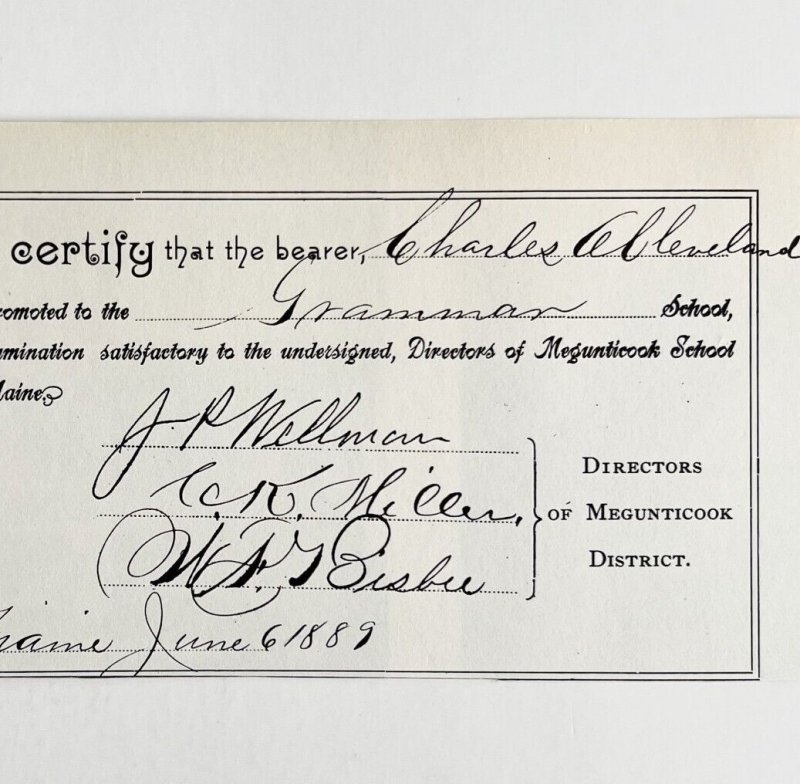 certify that the bearer, Charles A Cleveland
romoted to the Grammar School,
mination satisfactory to the undersigned, Directors of Megunticook School
Maine
J. P. Wellman
C. K. Miller,
W. F. Bisbee
DIRECTORS
OF MEGUNTICOOK
DISTRICT.
maine June 6 1889